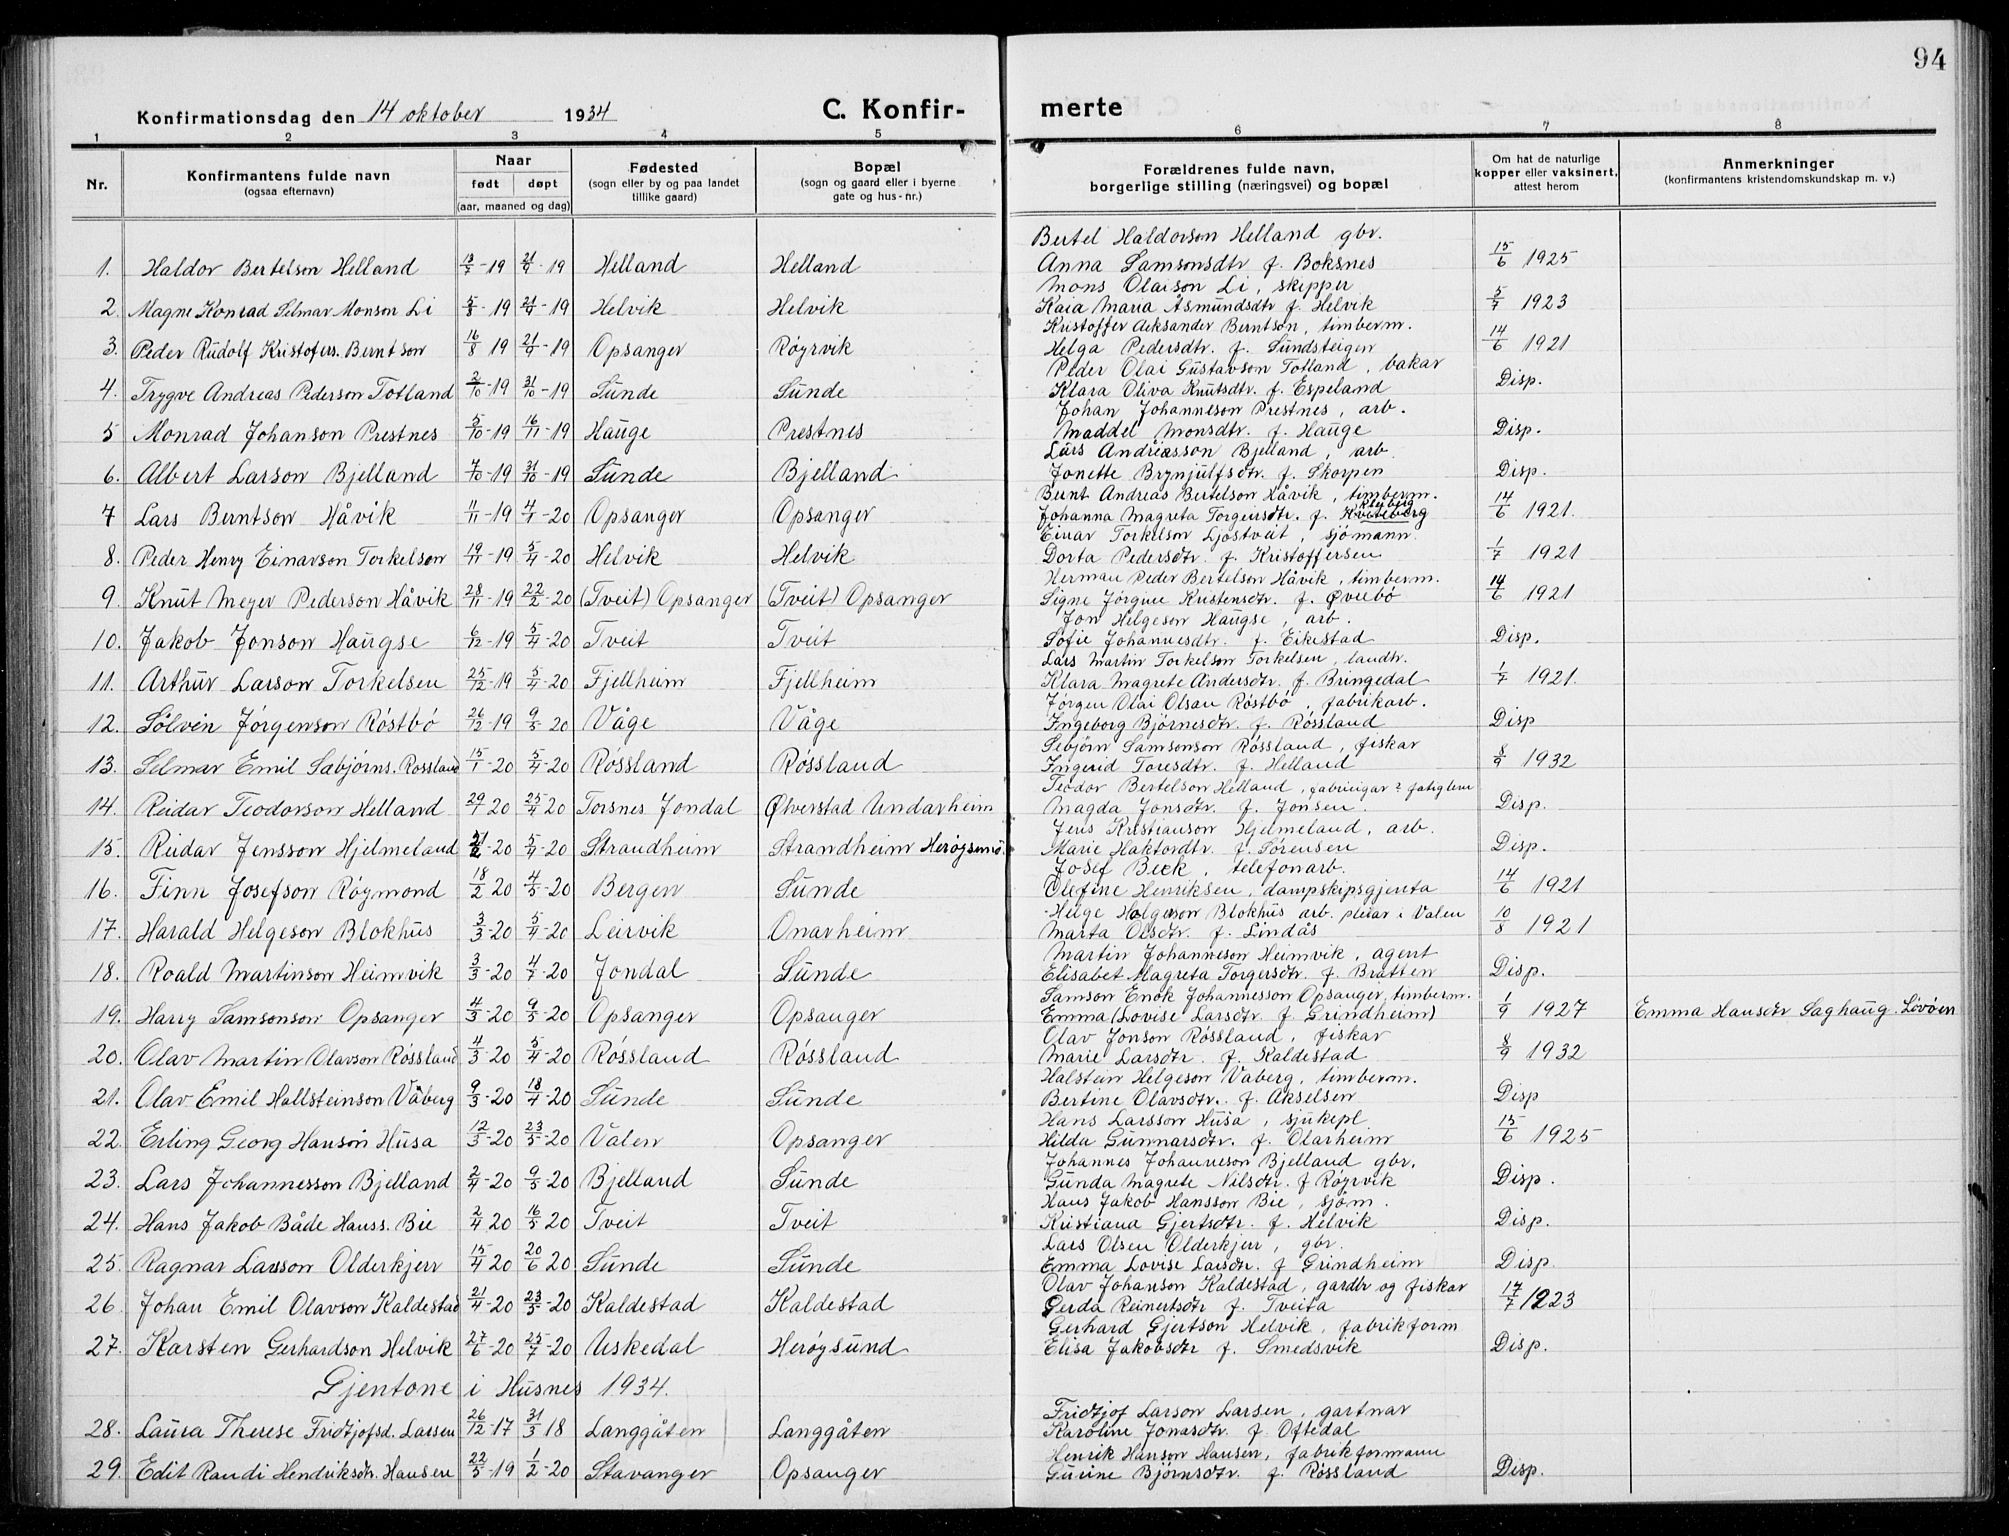 94
Konfirmationsdag den 14 oktober 1934 C. Konfir- merte
1 2 3 4 5 6 7 8
Nr. Konfirmantens fulde navn (ogsaa efternavn) Naar født døpt (aar, maaned og dag) Fødested (sogn eller by og paa landet tillike gaard) Bopæl (sogn og gaard eller i byerne gate og hus-nr.) Forældrenes fulde navn, borgerlige stilling (næringsvei) og bopæl Om hat de naturlige kopper eller vaksinert, attest herom Anmerkninger (konfirmantens kristendomskundskap m. v.)
Bertel Haldorson Helland gbr.
1. Haldor Bertelson Helland 13/7-19 21/9-19 Helland Helland Anna Samsonsdtr f. Boksnes 15/6 1925
Mons Olaison Li, skipper
2. Magne Konrad Selmar Monson Li 5/8-19 21/9-19 Helvik Helvik Kaia Maria Åsmundsdtr f. Helvik 5/7 1923
Kristoffer Aeksander Berntson, timberm.
3. Peder Rudolf Kristofers. Berntson 16/8 19 21/9-19 Opsanger Røyrvik Helga Pedersdtr. f. Sundsteigen 14/6 1921
Peder Olai Gustavson Totland, bakar
4. Trygve Andreas Pederson Totland 2/10-19 31/10-19 Sunde Sunde Klara Oliva Knutsdtr. f. Espeland Disp.
Johan Johanneson Prestnes, arb.
5 Monrad Johanson Prestnes 5/10-19 16/11-19 Hauge Prestnes Maddel Monsdtr. f. Hauge Disp.
Lars Andreasson Bjelland, arb.
6. Albert Larson Bjelland 7/10-19 31/10-19 Sunde Bjelland Jonette Brynjulfsdtr. f. Skorpen Disp.
Bernt Andreas Bertelson Håvik, timberm.
7 Lars Berntson Håvik 11/11-19 4/1-20 Opsanger Opsanger Johanna Magreta Torgeirsdtr. f. Kviteberg 14/6 1921.
Einar Torkelson Ljostveit, sjømann.
8. Peder Henry Einarson Torkelson 19/11-19 5/4-20 Helvik Helvik Dorta Pedersdtr. f. Kristoffersen 1/7 1921
Herman Peder Bertelson Håvik, timberm.
9. Knut Meyer Pederson Håvik 28/11-19 22/2-20 (Tveit) Opsanger (Tveit) Opsanger Signe Jørgine Kristensdtr. f. Øvrebø 14/6 1921
Jon Helgeson Haugse, arb.
10. Jakob Jonson Haugse 6/12-19 5/4-20 Tveit Tveit Sofie Johannesdtr. f. Eikestad Disp.
Lars Martin Torkelson Torkelsen, landtr.
11. Arthur Larson Torkelsen 25/12-19 5/4-20 Fjellheim Fjellheim Klara Magrete Andersdtr. f. Bringedal 1/7 1921.
Jørgen Olai Olsen Røstbø, fabrikarb.
12. Sølvin Jørgenson Røstbø 26/12-19 9/5 20 Våge Våge Ingeborg Bjørnesdtr. f. Røssland Disp
Sebjørn Samsonson Røssland, fiskar
13. Selmar Emil Sabjørns. Rossland 15/1-20 5/4-20 Røssland Røssland Ingerid Toresdtr. f. Helland 8/9 1932
Teodor Bertelson Helland,
14. Reidar Teodorson Helland 29/1 20 25/4 20 Torsnes Jondal Ølverstad Undarheim Magda Jonsdtr. f. Jonsen. Disp.
Jens Kristianson Hjelmeland, arb.
15. Reidar Jensson Hjelmeland 21/2-20 5/4-20 Strandheim Strandheim Herøysund. Marie Haktordtr. f. Sørensen Disp.
Josef Beck, telefonarb.
16. Finn Josefson Røymond 18/2 20 4/5-20 Bergen Sunde Olefine Henriksen, dampskipsgjenta 14/6 1921
Helge Helgeson Blokhus arb. pleiar i Valen
17. Harald Helgeson Blokhus 3/3-20 5/4-20 Leirvik Onarheim Marta Olsdtr. f. Lindås 10/8 1921
Martin Johanneson Heimvik, agent
18. Roald Martinson Heimvik 3/3-20 4/7-20 Jondal Sunde Elisabet Magreta Torgersdtr. f. Bratten Disp.
Samson Enok Johannesson Opsanger, timberm.
19. Harry Samsonson Opsanger 4/3-20 9/5-20 Opsanger Opsanger Emma (Lovise Larsdtr. f. Grindheim) 1/9 1927 Emma Hansdtr Saghaug Løvøen
Olav Jonson Røssland, fiskar
20. Olav Martin Olavson Røssland 4/3-20 5/4-20 Røssland Røssland Marie Larsdtr. f. Kaldestad 8/9 1932
Halstein Helgeson Vaberg, timberm.
21. Olav Emil Hallsteinson Våberg 9/3-20 18/4-20 Sunde Sunde Bertine Olavsdtr. f. Akselsen Disp
Hans Larsson Husa, sjukepl.
22. Erling Georg Hanson Husa 12/3-20 23/5-20 Valen Opsanger Hilda Gunnarsdtr. f. Olarheim 15/6 1925
Johannes Johanneson Bjelland gbr.
23. Lars Johannesson Bjelland 2/4-20 9/5-20 Bjelland Sunde Gunda Magrete Nilsdtr. f. Røyrvik Disp.
Hans Jakob Hansson Bie, sjøm.
24. Hans Jakob Både Hanss. Bie 2/4 20 16/5 20 Tveit Tveit Kristiana Gjertsdtr. f. Helvik Disp.
Lars Olsen Olderkjerr, gbr.
25. Ragnar Larsson Olderkjerr 15/4 20 20/6 20 Sunde Sunde Emma Lovise Larsdtr. f. Grindheim Disp.
Olav Johanson Kaldestad, gardbr og fiskar
26. Johan Emil Olavson Kaldestad 21/4-20 23/5-20 Kaldestad Kaldestad Gerda Reinertsdtr f. Tveita 17/7 1923
Gerhard Gjertson Helvik, fabrikform
27. Karsten Gerhardson Helvik 27/6-20 25/7-20 Uskedal Herøysund Elisa Jakobsdtr f. Smedsvik Disp.
Gjentone i Husnes 1934.
Fridtjof Larson Larsen, gartnar
28. Laura Therese Fridtjofsd. Larsen 26/12-17 31/3 18 Langgåten Langgåten Karoline Jonasdtr. f. Oftedal
Henrik Hanson Hansen, fabrikformann
29. Edit Randi Hendriksdtr. Hansen 22/5-19 1/2-20 Stavanger Opsanger Gurine Bjørnsdtr. f. Røssland Disp.